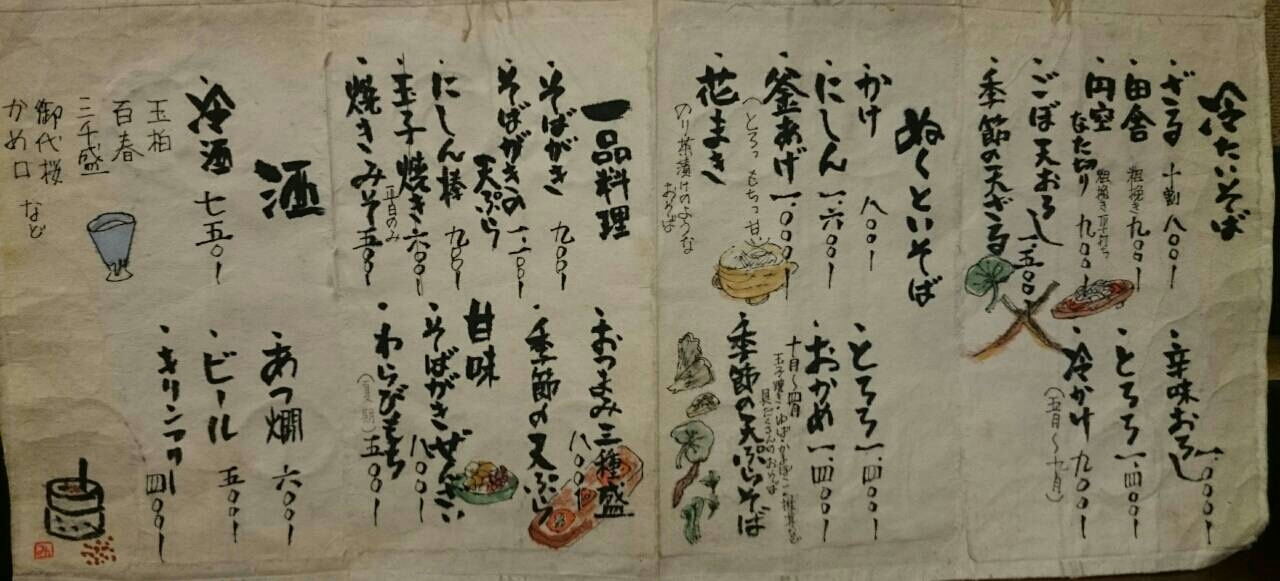 冷たいそば
・ざる 十割 八〇〇
・田舎 粗挽き 九〇〇
・円空 なた切り 粗挽き 九〇〇
・ごぼ天おろし 一、五〇〇
・季節の天ざる
・辛味おろし 一、〇〇〇
・とろろ 一、四〇〇
・冷かけ 九〇〇
(五月〜九月)
ぬくといそば
・かけ 八〇〇
・にしん 一、六〇〇
・釜あげ 一、〇〇〇
(とろっ もちっ 甘
・花まき
のり茶漬けのような
おそば
・とろろ 一、四〇〇
・おかめ 一、四〇〇
十月〜四月
玉子焼き・ゆば・かまぼこ・椎茸など
具だくさんのおそば
・季節の天ぷらそば
一品料理
・そばがき 九〇〇
・そばがきの天ぷら 一、一〇〇
・にしん棒 九〇〇
・玉子焼き 六〇〇
平日のみ
・焼きみそ 五〇〇
・おつまみ三種盛 八〇〇
・季節の天ぷら
甘味
・そばがきぜんざい 八〇〇
・わらびもち 五〇〇
(夏期)
酒
・冷酒 七五〇
玉柏
百春
三千盛
御代桜
かめ口 など
・あつ燗 六〇〇
・ビール 五〇〇
・キリンフリー 四〇〇